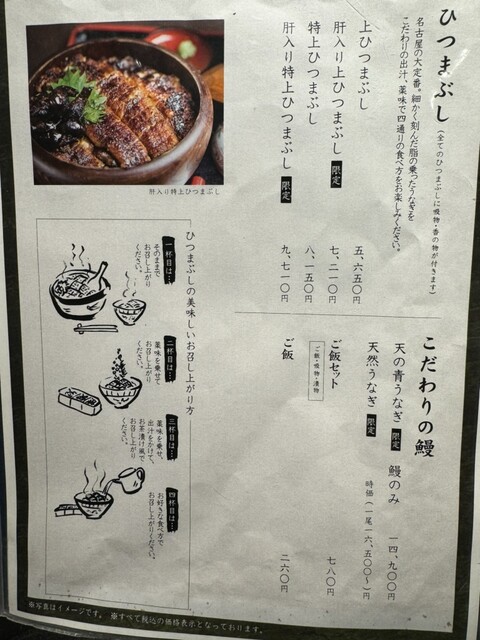 ひつまぶし(全てのひつまぶしに吸物・香の物が付きます)
名古屋の大定番。細かく刻んだ脂の乗ったうなぎを
こだわりの出汁、薬味で四通りの食べ方をお楽しみください。
上ひつまぶし 五、六五〇円
肝入り上ひつまぶし 限定 七、二一〇円
特上ひつまぶし 八、一五〇円
肝入り特上ひつまぶし 限定 九、七一〇円
こだわりの鰻
天の青うなぎ 限定 鰻のみ 一四、九〇〇円
天然うなぎ 限定 時価(一尾一六、五〇〇〜)円
ご飯セット 七八〇円
ご飯・吸物・漬物
ご飯 二六〇円
肝入り特上ひつまぶし
ひつまぶしの美味しいお召し上がり方
一杯目は…
そのままで
お召し上がり
ください。
二杯目は…
薬味を乗せて
お召し上がり
ください。
三杯目は…
薬味を乗せ、
出汁をかけて、
お茶漬け風で
お召し上がり
ください。
四杯目は…
お好きな食べ方で
お召し上がりください。
※写真はイメージです。 ※すべて税込の価格表示となっております。